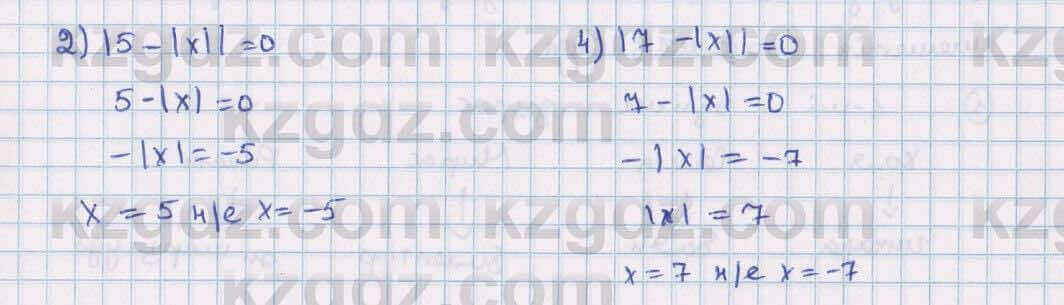 2) |5 - |x|| = 0
5 - |x| = 0
- |x| = -5
x = 5 н/е x = -5
4) |7 - |x|| = 0
7 - |x| = 0
- |x| = -7
|x| = 7
x = 7 н/е x = -7
kzgdz.com
kzgdz.com
kzgdz.com
kzgdz.com
kzgdz.com